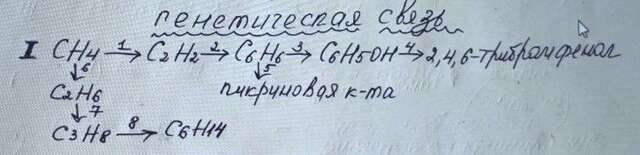 генетическая связь
I CH4 1→ C2H2 2→ C6H6 3→ C6H5OH 4→ 2,4,6-трибромфенол
↓6 ↓5
C2H6 пикриновая к-та
↓7
C3H8 8→ C6H14